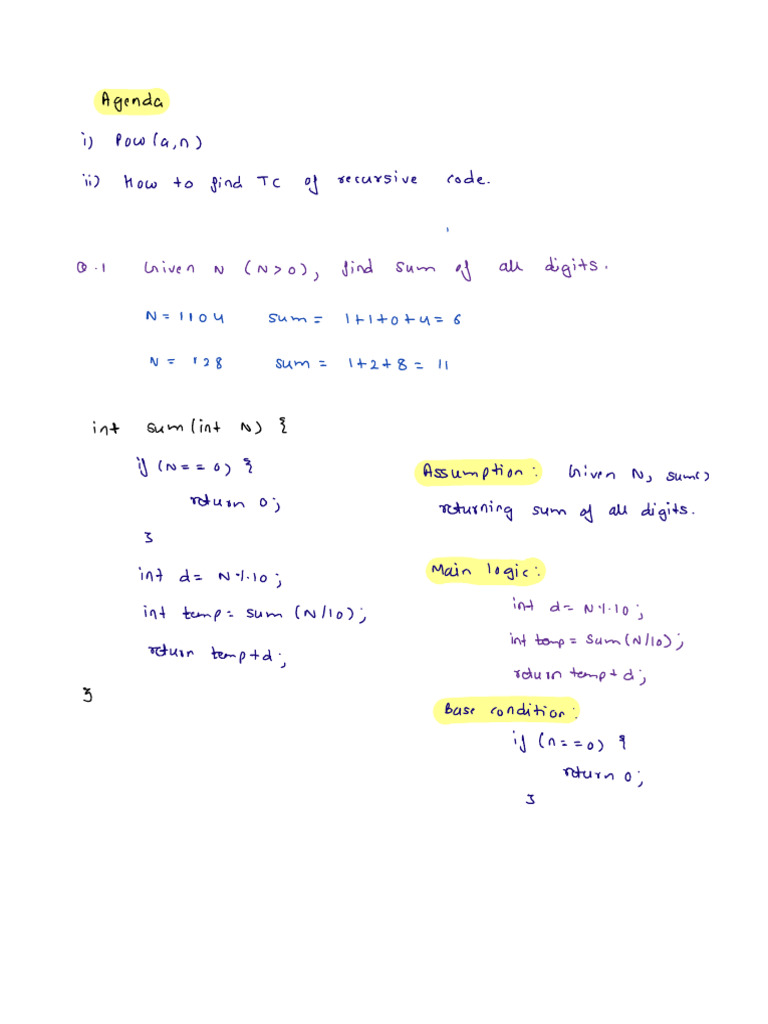 Agenda
i) Pow(a,n)
ii) How to find TC of recursive code.
Q.1 Given N (N>0), find sum of all digits.
N=1104 sum = 1+1+0+4=6
N = 128 sum = 1+2+8 = 11
int sum(int N) {
if (N==0) {
return 0;
}
int d= N%10;
int temp= sum (N/10);
return temp+d;
}
Assumption: Given N, sum()
returning sum of all digits.
Main logic:
int d= N%10;
int temp= sum(N/10);
return temp+d;
Base condition:
if (n==0) {
return 0;
}